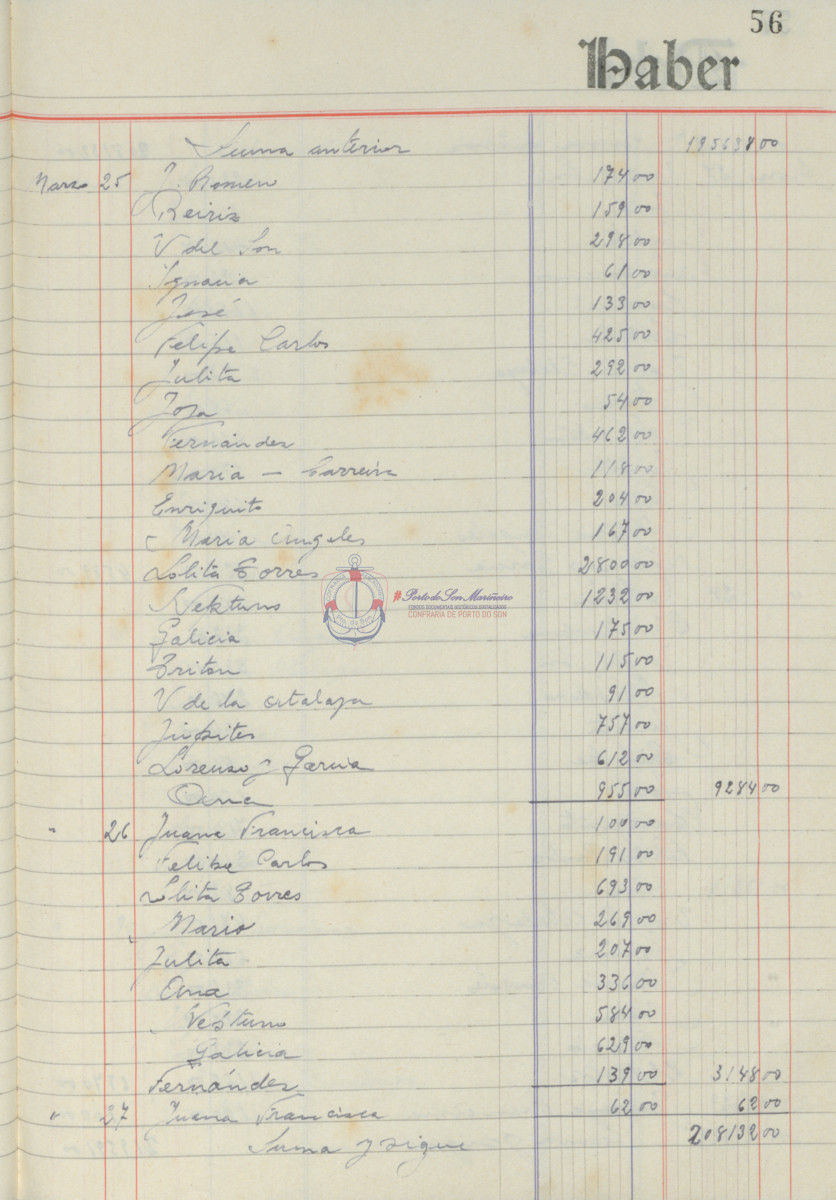 56
Haber
Suma anterior 195638 00
Marzo 25 J. Romero 174 00
Reiriz 159 00
V del Son 298 00
Ignacia 61 00
José 133 00
Felipe Carlos 425 00
Julita 292 00
54 00
Fernández 462 00
Maria - Carreira 118 00
Enriquito 204 00
Maria Angeles 167 00
Lolita Torres 2800 00
1232 00
Galicia 175 00
Triton 115 00
V de la Atalaya 91 00
757 00
Lorenzo y Garcia 612 00
Ana 955 00 9284 00
" 26 Juana Francisca 100 00
Felipe Carlos 191 00
Lolita Torres 693 00
Mario 269 00
Julita 207 00
Ana 336 00
584 00
Galicia 629 00
Fernández 139 00 3148 00
" 27 Juana Francisca 62 00 62 00
Suma y sigue 208132 00
#Porto do Son Mariñeiro
CONFRARIA DE PORTO DO SON